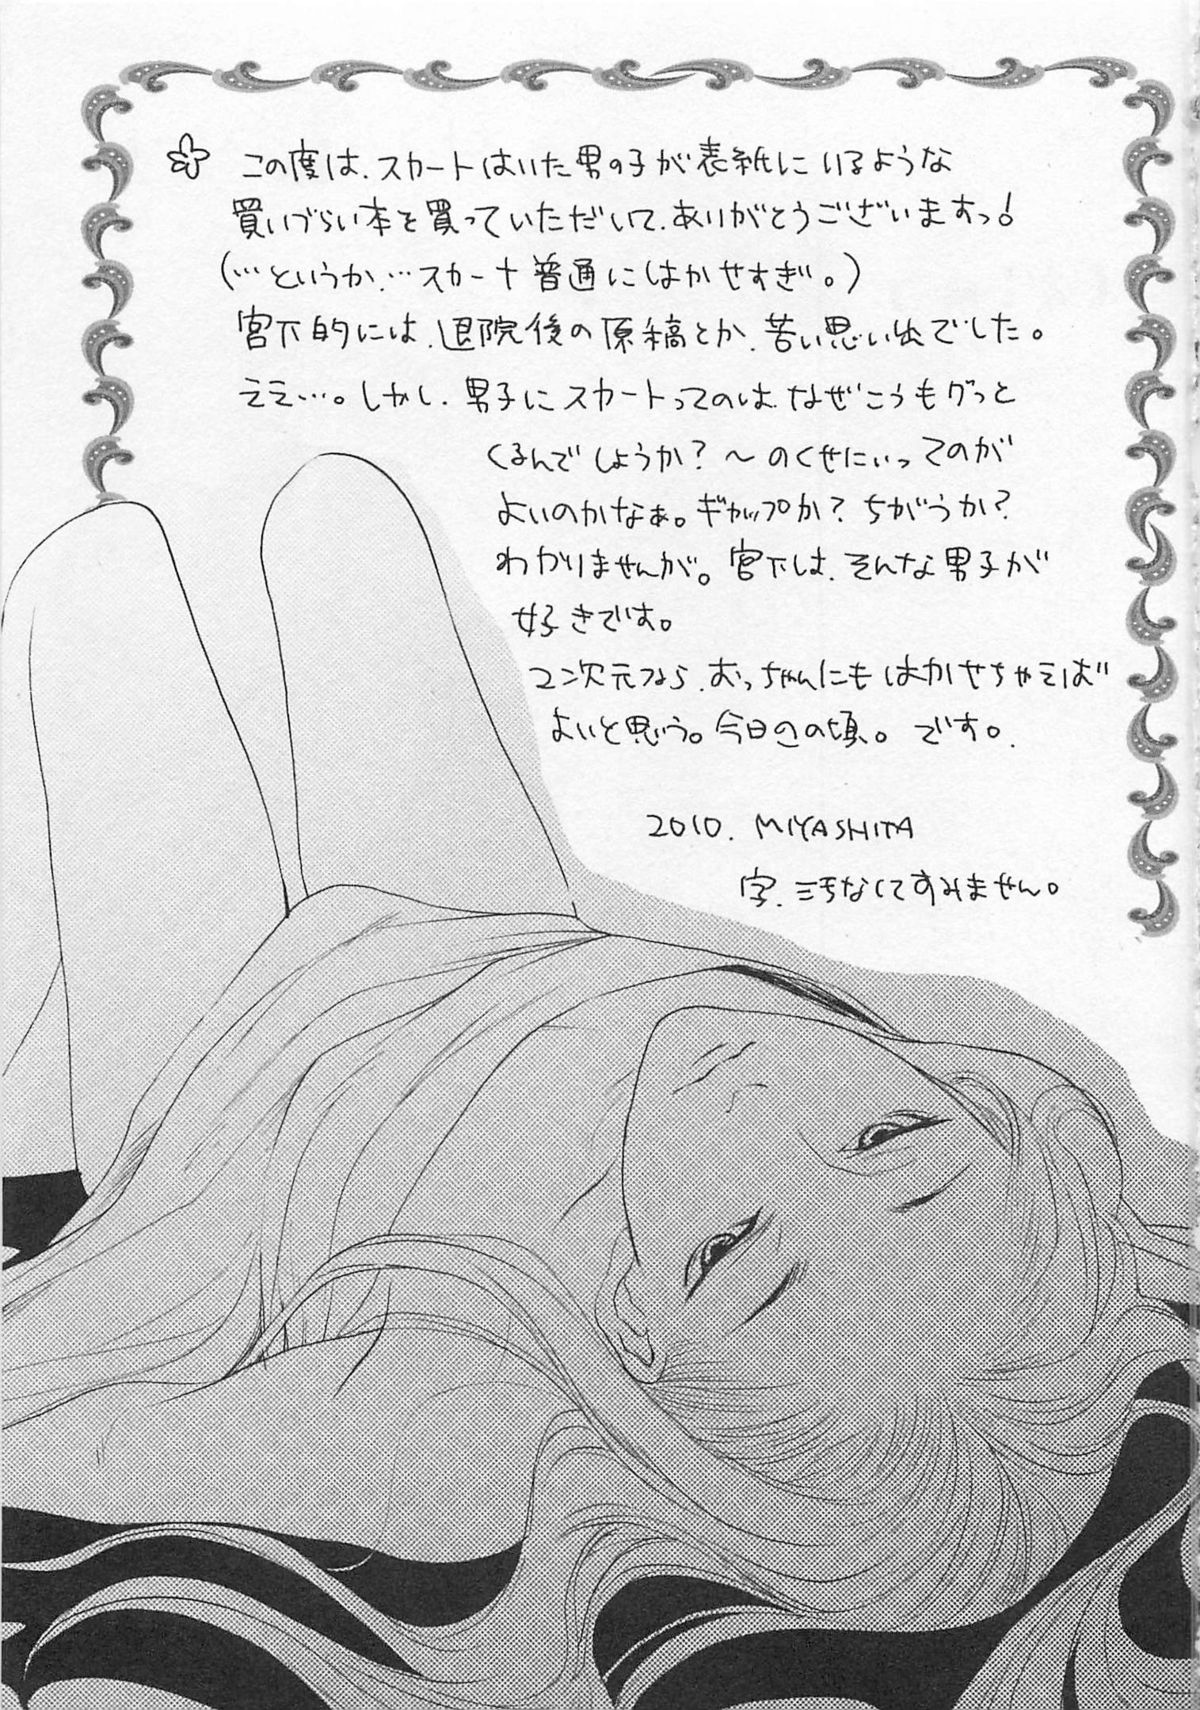 この度は、スカートはいた男の子が表紙にいるような
買いづらい本を買っていただいて、ありがとうございますっ!
(…というか、…スカート普通にはかせすぎ。)
宮下的には、退院後の原稿とか、苦い思い出でした。
ええ…。しかし、男子にスカートってのは、なぜこうもグッと
くるんでしょうか?〜のくせにぃってのが
よいのかなぁ。ギャップか?ちがうか?
わかりませんが。宮下は、そんな男子が
好きです。
2次元なら、おっちゃんにもはかせちゃえば
よいと思う。今日この頃。です。
2010. MIYASHITA
字、きちなくてすみません。